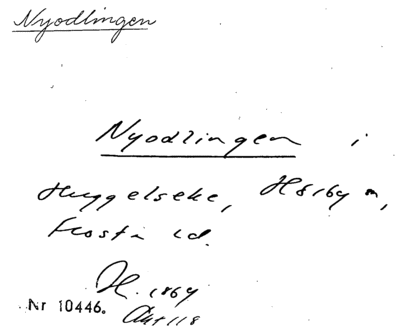 Nyodlingen
Nyodlingen i
Huggelseke, Hörby s,
Frosta hd.
H. 1869
Nr 10446. Akt 118